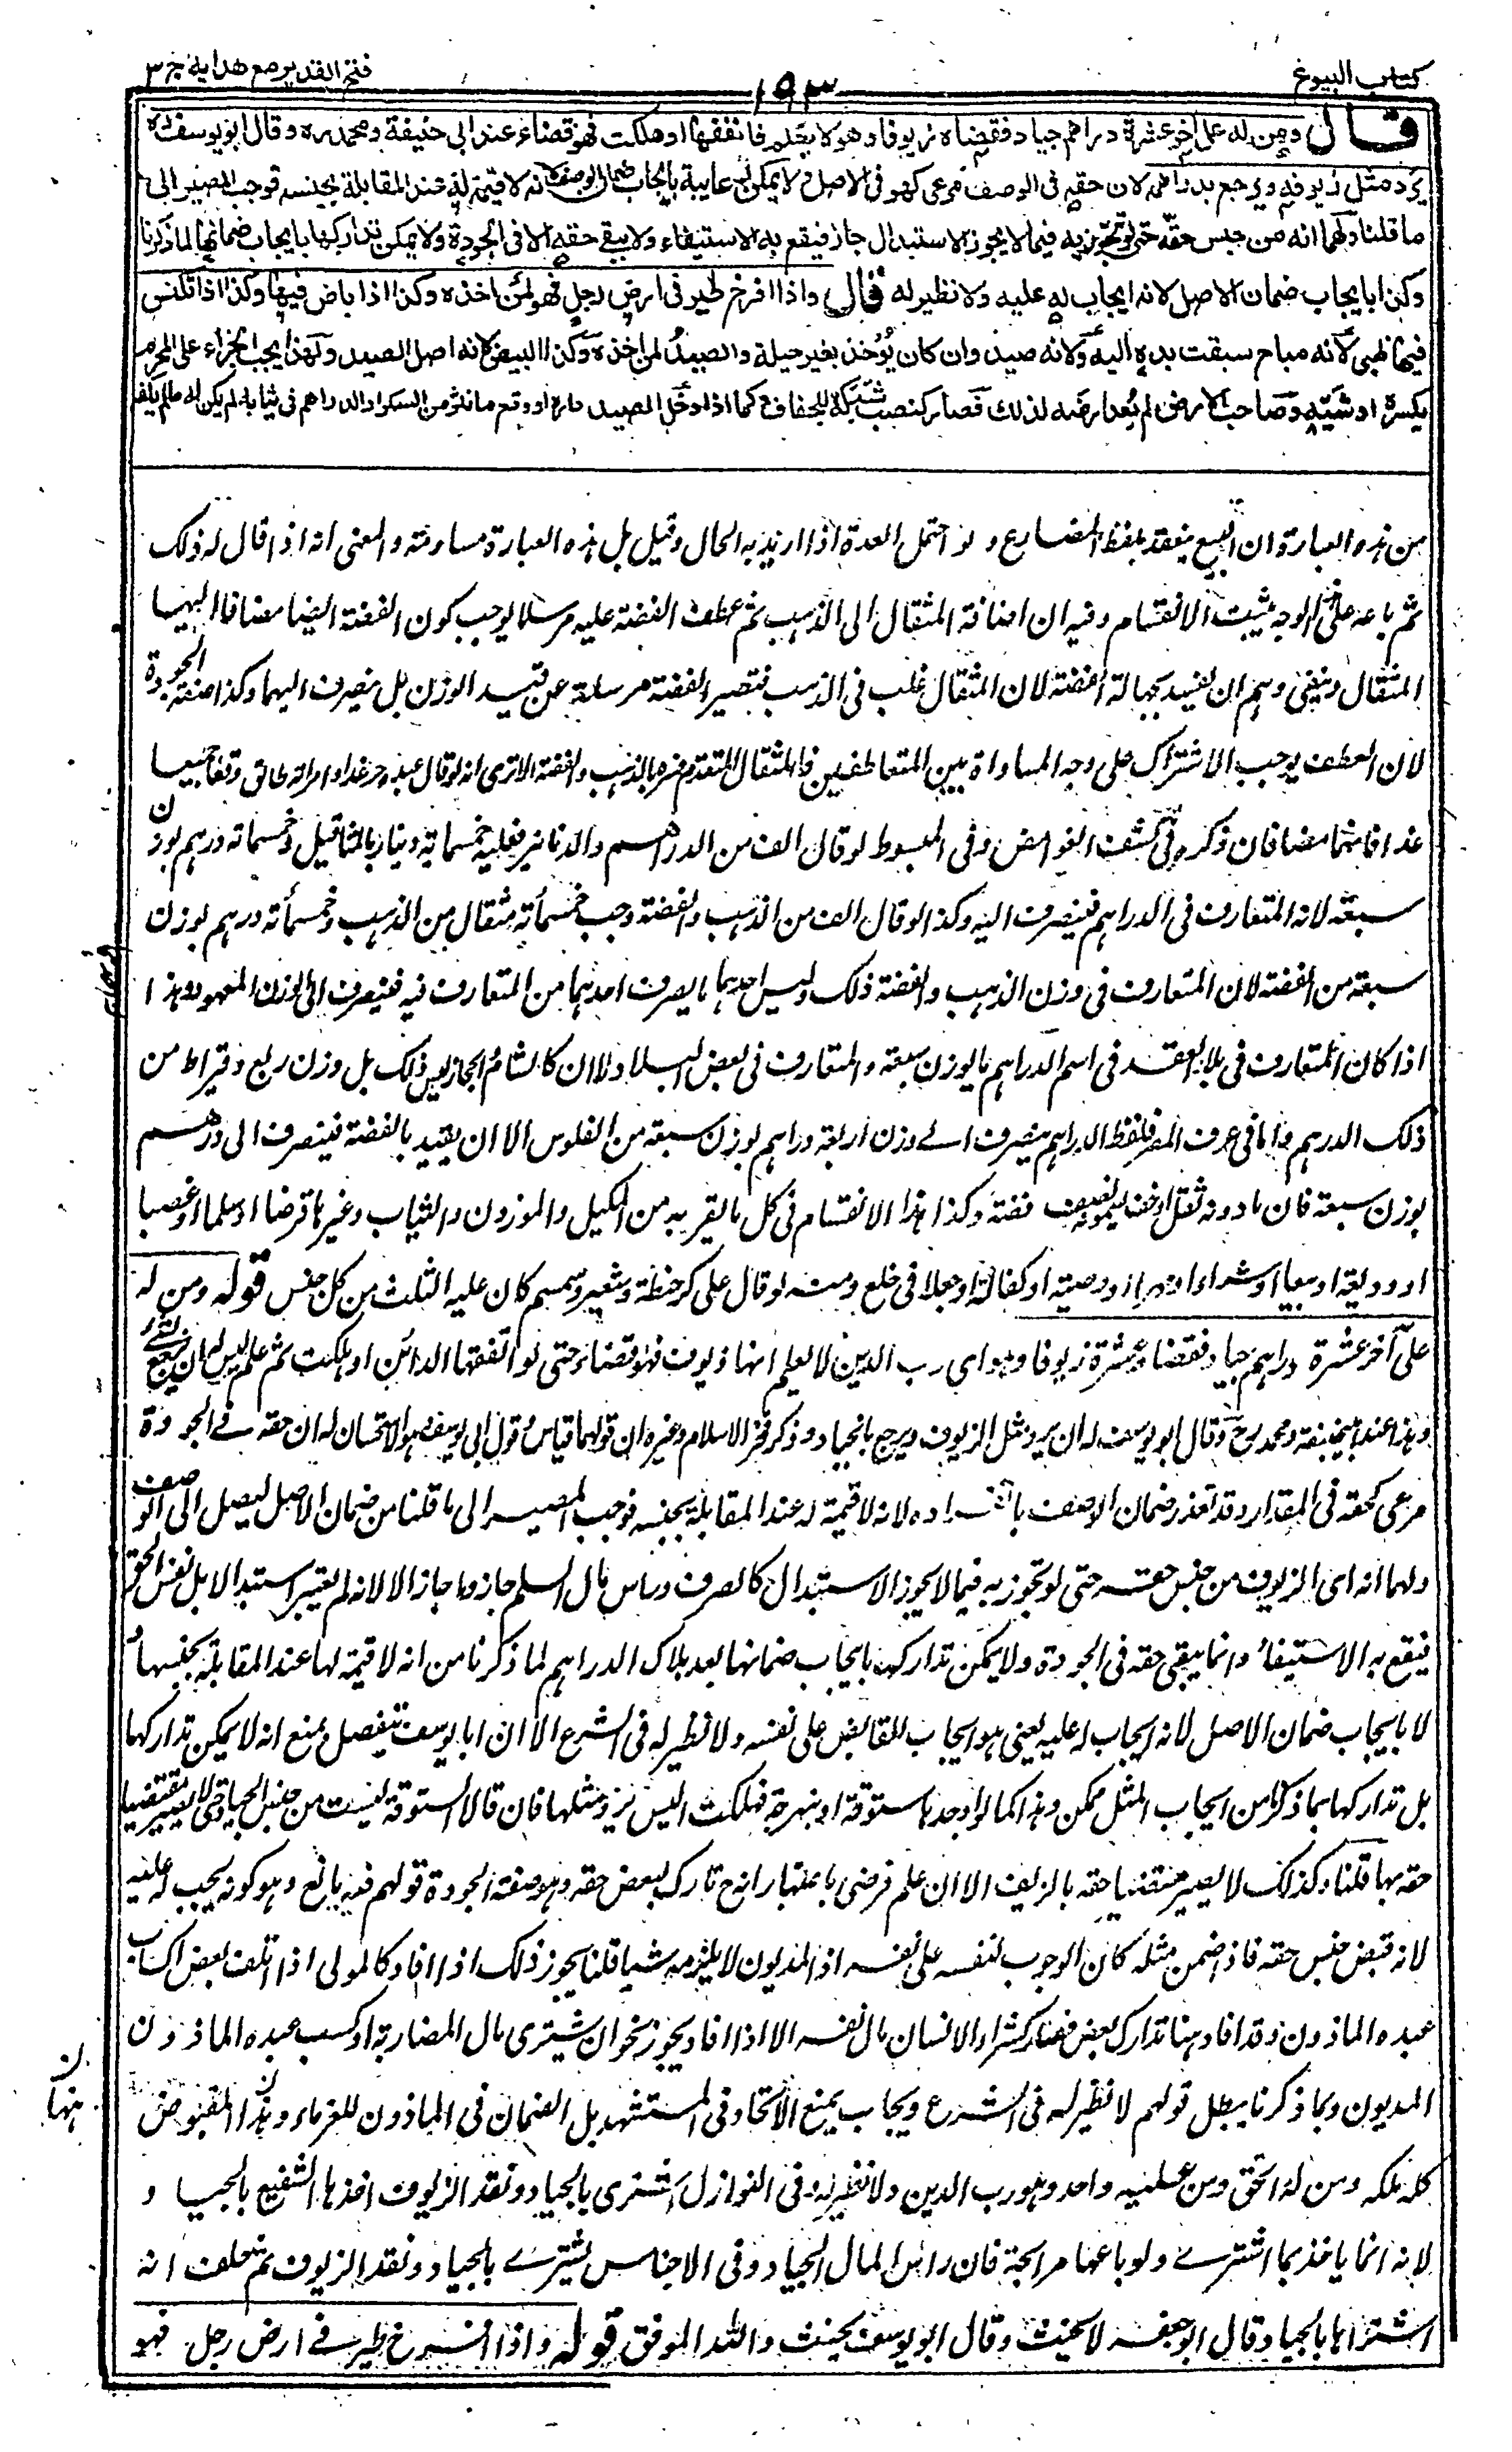 كتاب البيوع
١٩٣
فتح القدير مع هداية ج ٣
قال ومن له على آخر عشرة دراهم جياد فقضاه زيوفا وهو لا يعلم فانفقها او هلكت فهو قضاء عند ابى حنيفة ومحمد ره وقال ابو يوسف ره
يرد مثل زيوفه ويرجع بدراهمه لان حقه فى الوصف مرعى كهو فى الاصل ولا يمكن رعايته بايجاب ضمان الوصف لانه لا قيمة له عند المقابلة بجنسه فوجب المصير الى
ما قلنا ولهما انه من جنس حقه حتى لو تجوز به فيما لا يجوز الاستبدال جاز فيقع به الاستيفاء ولا يبقى حقه الا فى الجودة ولا يمكن تداركها بايجاب ضمانها لما ذكرنا
وكذا بايجاب ضمان الاصل لانه ايجاب له عليه ولا نظير له قال واذا افرخ طير فى ارض رجل فهو لمن اخذه وكذا اذا باض فيها وكذا اذا تكنس
فيها ظبى لانه مباح سبقت يده اليه ولانه صيد وان كان يؤخذ بغير حيلة والصيد لمن اخذه وكذا البيض لانه اصل الصيد ولهذا يجب الجزاء على المحرم
بكسره او شيّه وصاحب الارض لم يعد ارضه لذلك فصار كنصب شبكة للجفاف وكما اذا دخل الصيد داره او وقع ما نثر من السكر او الدراهم فى ثيابه لم يكن له مالم يكفه
من هذه العبارة ان البيع ينعقد بلفظ المضارع ولو احتمل العدة اذا اريد به الحال وقيل بل هذه العبارة مساومته والمعنى انه اذا قال له ذلك
ثم باعه على الوجه يثبت الانقسام وفيه ان اضافة المثقال الى الذهب ثم عطف الفضة عليه مرسلا يوجب كون الفضة ايضا مضافا اليها
المثقال وينفى وهم ان يفسد بجهالة الفضة لان المثقال غلب فى الذهب فتصير الفضة مرسلة عن قيد الوزن بل ينصرف اليهما وكذا صفة الجودة
لان العطف يوجب الاشتراك على وجه المساواة بين المتعاطفين فالمثقال المتقدم فسره بالذهب والفضة الا ترى انه لو قال عبده حر غدا وامرأته طالق وقعا جميعا
غدا فانهما مضافان ذكره فى كشف الغوامض وفى المبسوط لو قال الف من الدراهم والدنانير فعليه خمسمائة دينار بالمثاقيل وخمسمائة درهم بوزن
سبعة لانه المتعارف فى الدراهم فينصرف اليه وكذا لو قال الف من الذهب والفضة وجب خمسمأته مثقال من الذهب وخمسمأته درهم بوزن
سبعة من الفضة لان المتعارف فى وزن الذهب والفضة ذلك وليس احدهما يصرف احدهما من المتعارف فيه فينصرف الى الوزن المعهود وهذا
اذا كان المتعارف فى بلد العقد فى اسم الدراهم ما يوزن سبعة والمتعارف فى بعض البلاد الان كالشام والحجاز ليس ذلك بل وزن ربع وقيراط من
ذلك الدرهم واما فى عرف المصر فلفظ الدراهم ينصرف الى وزن اربعة دراهم بوزن سبعة من الفلوس الا ان يقيد بالفضة فينصرف الى درهم
بوزن سبعة فان ما دونه ثقل او خف يسمونه نصف فضة وكذا هذا الانقسام فى كل ما يقر به من المكيل والموزون والثياب وغيرها قرضا او سلما او غصبا
او وديعة او بيعا او شراء او مهرا او وصية او كفالة او جعلا فى خلع ومنه لو قال على كر حنطة وشعير وسمسم كان عليه الثلث من كل جنس قوله ومن له
على آخر عشرة دراهم جياد فقضاه عشرة زيوفا وهو اى رب الدين لا يعلم انها زيوف فهو قضاء حتى لو انفقها الدائن او هلكت ثم علم ليس له ان يرجع بشئ
وهذا عند ابيحنيفة ومحمد رح وقال ابو يوسف له ان يرد مثل الزيوف ويرجع بالجياد وذكر فخر الاسلام وغيره ان قولهما قياس وقول ابى يوسف هو الاستحسان له ان حقه فى الجودة
مرعى كحقه فى المقدار وقد تعذر ضمان الوصف بانفراده لانه لا قيمة له عند المقابلة بجنسه فوجب المصير الى ما قلنا من ضمان الاصل ليصل الى الوصف
ولهما انه اى الزيوف من جنس حقه حتى لو تجوز به فيما لا يجوز الاستبدال كالصرف ورأس مال السلم جاز وما جاز الا لانه لم يعتبر استبدالا بل نفس الحق
فيقع به الاستيفاء وانما يبقى حقه فى الجودة ولا يمكن تداركها بايجاب ضمانها بعد هلاك الدراهم لما ذكرنا من انه لا قيمة لها عند المقابلة بجنسها
لا بايجاب ضمان الاصل لانه ايجاب له عليه يعنى هو ايجاب للقابض على نفسه ولا نظير له فى الشرع الا ان ابا يوسف يتفصل بمنع انه لا يمكن تداركها
بل تداركها بما ذكرنا من ايجاب المثل ممكن وهذا كما لو وجدها ستوقة او نبهرجة فهلكت اليس يرد مثلها فان قالا الستوقة ليست من جنس الجياد حتى لا يصير مقتضيا
حقه بها قلنا وكذلك لا يصير مقتضيا حقه بالزيف الا ان علم فرضى باعتبار انه ح تارك لبعض حقه وهو صفة الجودة قولهم فيه مانع وهو كونه يجب له عليه
لانه قبض جنس حقه فاذا ضمن مثله كان الوجوب لنفسه على نفسه اذ المديون لا يلزمه شيئا قلنا يجوز ذلك اذا افاد كالمولى اذا اتلف بعض اكساب
عبده الماذون وقد افاد ههنا تدارك بعض فصار كشراء الانسان مال نفسه الا اذا افاد يجوز نحو ان يشترى مال المضاربة او كسب عبده الماذون
المديون وبما ذكرنا يبطل قولهم لا نظير له فى الشرع ويجاب بمنع الاتحاد فى المستشهد بل الضمان فى الماذون للغرماء وهذا المقبوض
كله ملكه ومن له الحق ومن عليه واحد وهو رب الدين ولا نظير له وفى النوازل اشترى بالجياد ونقد الزيوف اخذها الشفيع بالجياد
لانه انما ياخذ بما اشترى ولو باعها مرابحة فان راس المال الجياد وفى الاجناس يشترى بالجياد ونقد الزيوف ثم حلف انه
اشتراها بالجياد قال ابو جعفر لا يحنث وقال ابو يوسف يحنث والله الموفق قوله واذا افرخ طير فى ارض رجل فهو